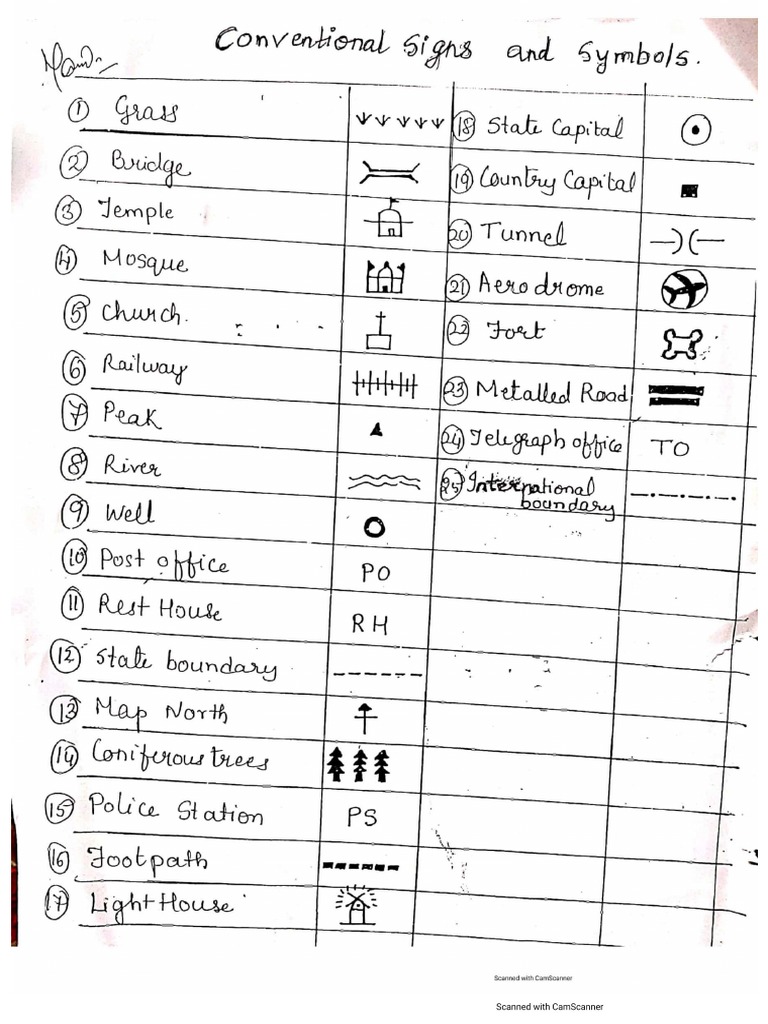 Conventional Signs and Symbols.
① Grass
② Bridge
③ Temple
④ Mosque
⑤ Church.
⑥ Railway
⑦ Peak
⑧ River
⑨ Well
⑩ Post office PO
⑪ Rest House RH
⑫ State boundary
⑬ Map North
⑭ Coniferous trees
⑮ Police Station PS
⑯ Footpath
⑰ Light House
⑱ State Capital
⑲ Country Capital
⑳ Tunnel
㉑ Aerodrome
㉒ Fort
㉓ Metalled Road
㉔ Telegraph office TO
㉕ International
boundary
Scanned with CamScanner
Scanned with CamScanner